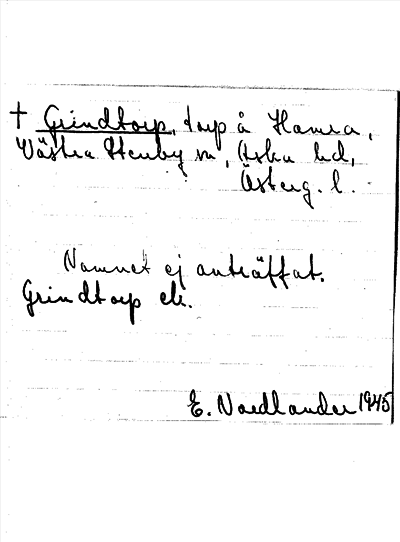 † Grindtorp, torp å Hamra,
Västra Stenby sn, Aska hd,
Österg. l.
Namnet ej anträffat.
Grindtorp ek.
E. Nordlander 1945